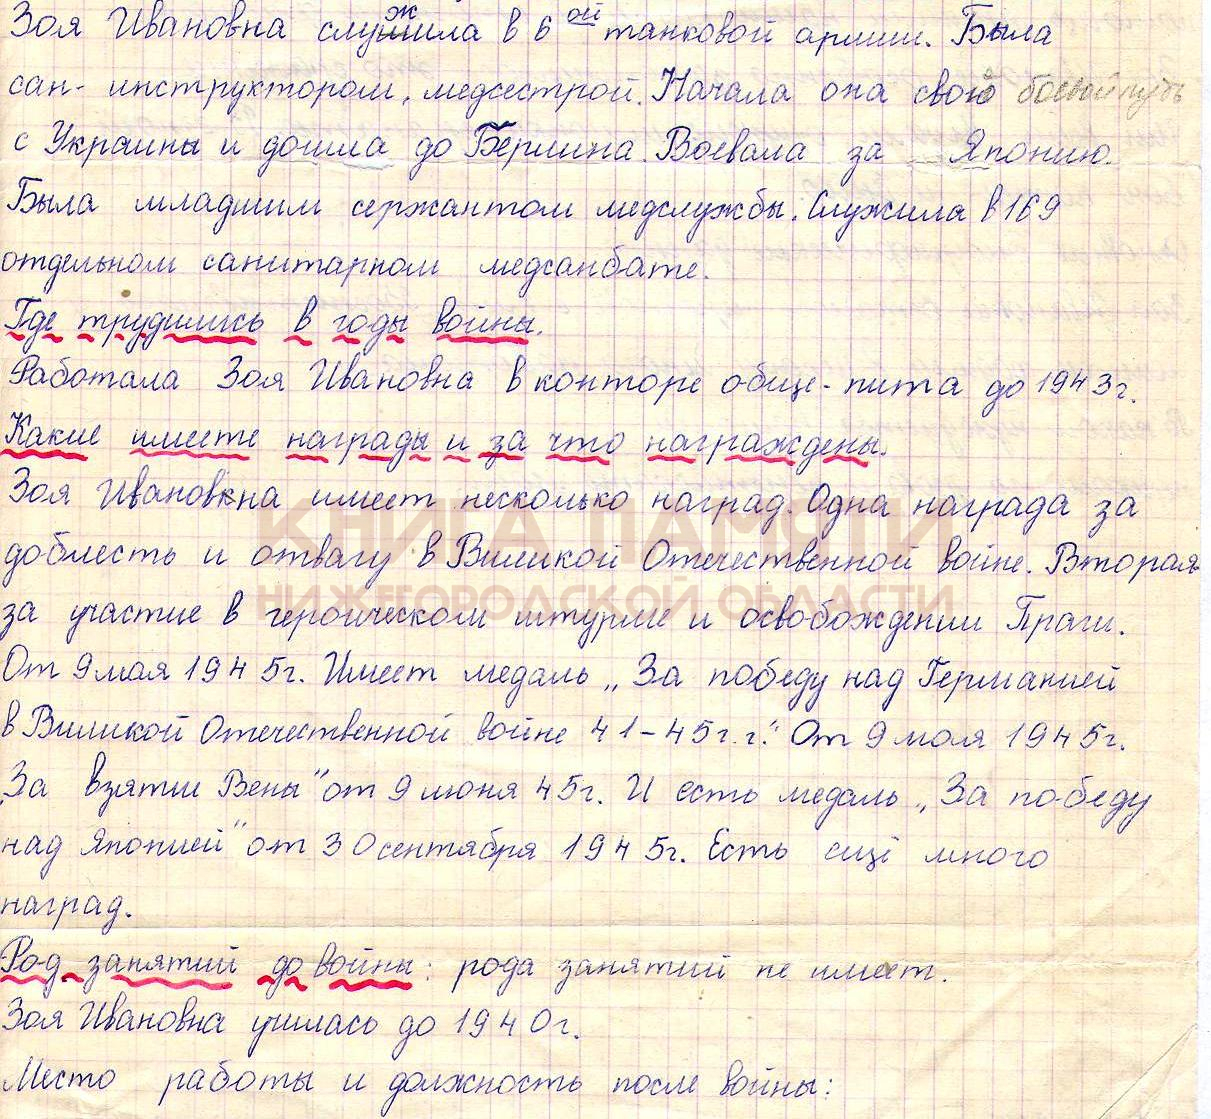 Зоя Ивановна служила в 6 ой танковой армии. Была
сан- инструктором, медсестрой. Начала она свой боевой путь
с Украины и дошла до Берлина. Воевала за Японию.
Была младшим сержантом медслужбы. Служила в 169
отдельном санитарном медсанбате.
Где трудились в годы войны.
Работала Зоя Ивановна в конторе обще-пита до 1943г.
Какие имеете награды и за что награждены.
Зоя Ивановна имеет несколько наград. Одна награда за
доблесть и отвагу в Виликой Отечественной войне. Вторая
за участие в героическом штурме и освобождении Праги.
От 9 мая 1945г. Имеет медаль „За победу над Германией
в Виликой Отечественной войне 41-45г.г." От 9 мая 1945г.
„За взятии Вены" от 9 июня 45г. И есть медаль „За победу
над Японией" от 30 сентября 1945г. Есть ещё много
наград.
Род занятий до войны: рода занятий не имеет.
Зоя Ивановна училась до 1940г.
Место работы и должность после войны:
КНИГА ПАМЯТИ
НИЖЕГОРОДСКОЙ ОБЛАСТИ